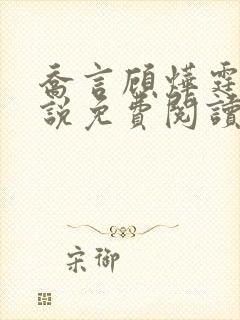 喬言顧燁霆
說免費閱讀
宋御